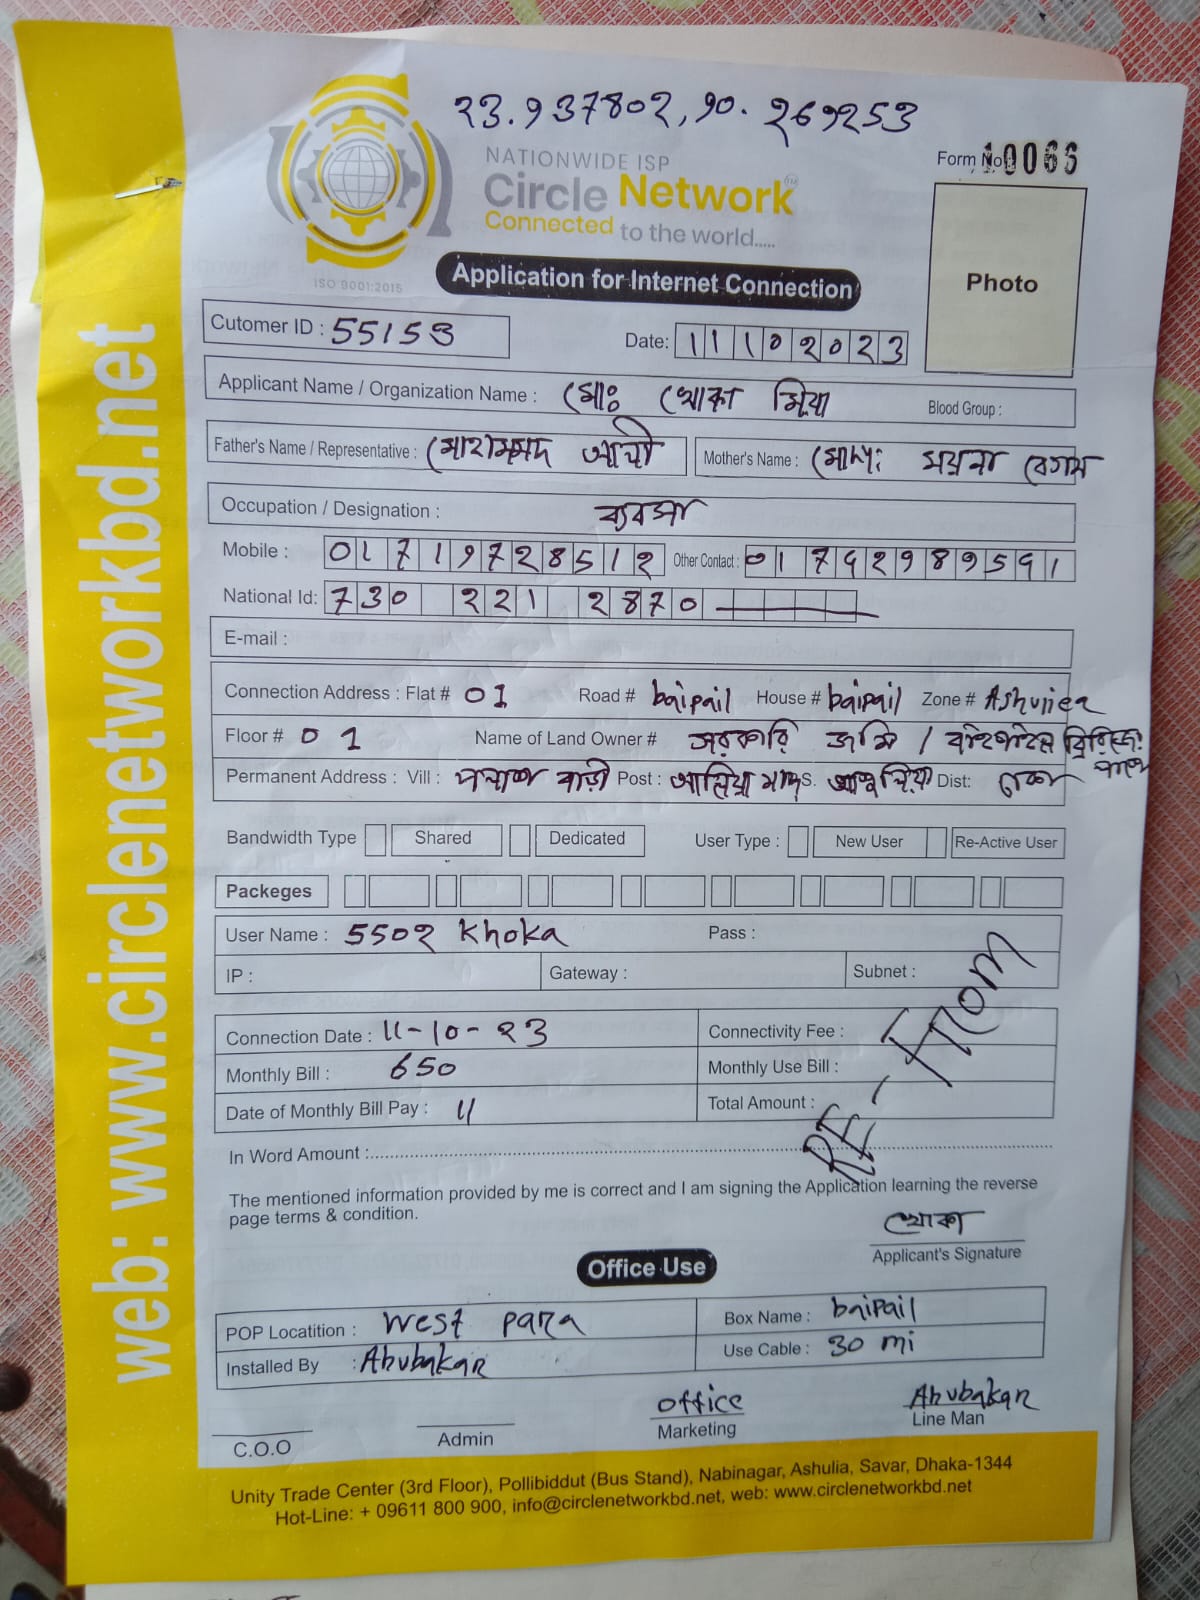 23.937802, 90.269253
NATIONWIDE ISP
Circle Network TM
Connected to the world.....
ISO 9001:2015
Form No 10066
Photo
Application for Internet Connection
Cutomer ID : 55153
Date: 11102023
Applicant Name / Organization Name : মোঃ খোকা মিয়া Blood Group :
Father's Name / Representative : মোহাম্মদ আলী Mother's Name : মোসাঃ ময়না বেগম
Occupation / Designation : ব্যবসা
Mobile : 01719728512 Other Contact : 01742989591
National Id: 730 221 2870
E-mail :
Connection Address : Flat # 01 Road # baipail House # baipail Zone # Ashuliea
Floor # 01 Name of Land Owner # সরকারি জমি / বাইপাইল ব্রিজের পাশে
Permanent Address : Vill : পলাশ বাড়ী Post : আলিয়া মাদ্রাসা P.S. আশুলিয়া Dist: ঢাকা
Bandwidth Type Shared Dedicated User Type : New User Re-Active User
Packeges
User Name : 5502 Khoka Pass :
IP : Gateway : Subnet :
Connection Date : 11-10-23 Connectivity Fee :
Monthly Bill : 650 Monthly Use Bill :
Date of Monthly Bill Pay : 11 Total Amount :
RE - From
In Word Amount :
The mentioned information provided by me is correct and I am signing the Application learning the reverse
page terms & condition.
খোকা
Applicant's Signature
Office Use
POP Locatition : West para Box Name : baipail
Installed By : Abubakar Use Cable : 30 mi
C.O.O Admin Office Marketing Abubakar Line Man
Unity Trade Center (3rd Floor), Pollibiddut (Bus Stand), Nabinagar, Ashulia, Savar, Dhaka-1344
Hot-Line: + 09611 800 900, info@circlenetworkbd.net, web: www.circlenetworkbd.net
web: www.circlenetworkbd.net